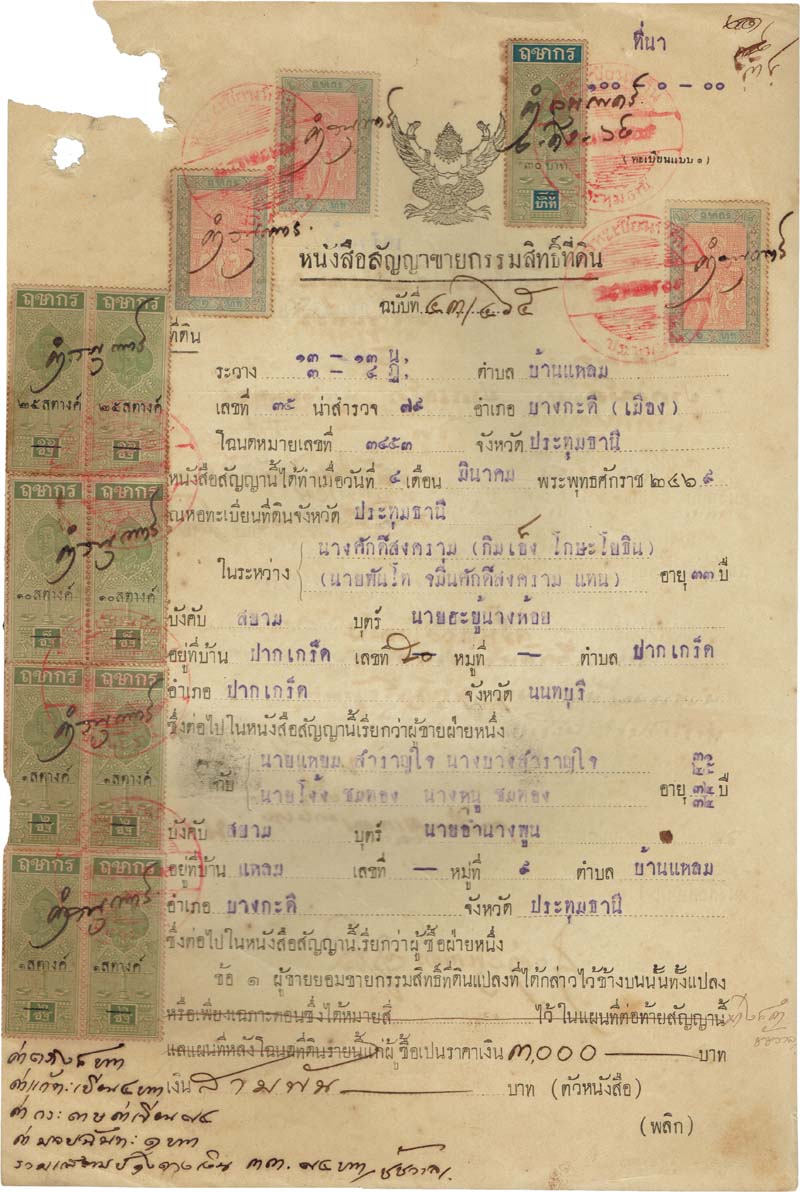 ที่นา
๑๐๐ - ๐ - ๐๐
(ทะเบียนแบบ ๑)
ฤชากร
๒๐ บาท
หนังสือสัญญาขายกรรมสิทธิ์ที่ดิน
ฉบับที่
ที่ดิน
ระวาง ๑๓ - ๑๓ น, ๓ - ๔ ฎ, ตำบล บ้านแหลม
เลขที่ ๓๕ น่าสำรวจ ๗๙ อำเภอ บางกะดี (เมือง)
โฉนดหมายเลขที่ ๓๔๕๓ จังหวัด ประทุมธานี
หนังสือสัญญานี้ได้ทำเมื่อวันที่ ๔ เดือน มีนาคม พระพุทธศักราช ๒๔๖๙
ณหอทะเบียนที่ดินจังหวัด ประทุมธานี
ในระหว่าง นางศักดิ์สงคราม (กิมเฮ็ง โกษะโยธิน)
(นายพันโท จมื่นศักดิ์สงคราม แหน) อายุ ๓๓ ปี
บังคับ สยาม บุตร์ นายฮะยู้นางห้อย
อยู่ที่บ้าน ปากเกร็ด เลขที่ หมู่ที่ - ตำบล ปากเกร็ด
อำเภอ ปากเกร็ด จังหวัด นนทบุรี
ซึ่งต่อไปในหนังสือสัญญานี้เรียกว่าผู้ขายฝ่ายหนึ่ง
กับ นายแหยม สำราญใจ นางบางสำราญใจ
นายโง้ง ชมทอง นางหนู ชมทอง อายุ ปี
บังคับ สยาม บุตร์ นายอ่ำนางพูน
อยู่ที่บ้าน แหลม เลขที่ - หมู่ที่ ๙ ตำบล บ้านแหลม
อำเภอ บางกะดี จังหวัด ประทุมธานี
ซึ่งต่อไปในหนังสือสัญญานี้เรียกว่าผู้ซื้อฝ่ายหนึ่ง
ข้อ ๑ ผู้ขายยอมขายกรรมสิทธิ์ที่ดินแปลงที่ได้กล่าวไว้ข้างบนนั้นทั้งแปลง
หรือเพียงเฉภาะตอนซึ่งได้หมายสี ไว้ ในแผนที่ต่อท้ายสัญญานี้
แลแผนที่หลังโฉนดที่ดินรายนี้แก่ผู้ซื้อเปนราคาเงิน ๓,๐๐๐ บาท
เงิน สามพัน บาท (ตัวหนังสือ)
(พลิก)
ฤชากร ฤชากร
๒๕ สตางค์ ๒๕ สตางค์
ฤชากร ฤชากร
๑๐ สตางค์ ๑๐ สตางค์
ฤชากร ฤชากร
๑ สตางค์ ๑ สตางค์
ฤชากร ฤชากร
๑ สตางค์ ๑ สตางค์